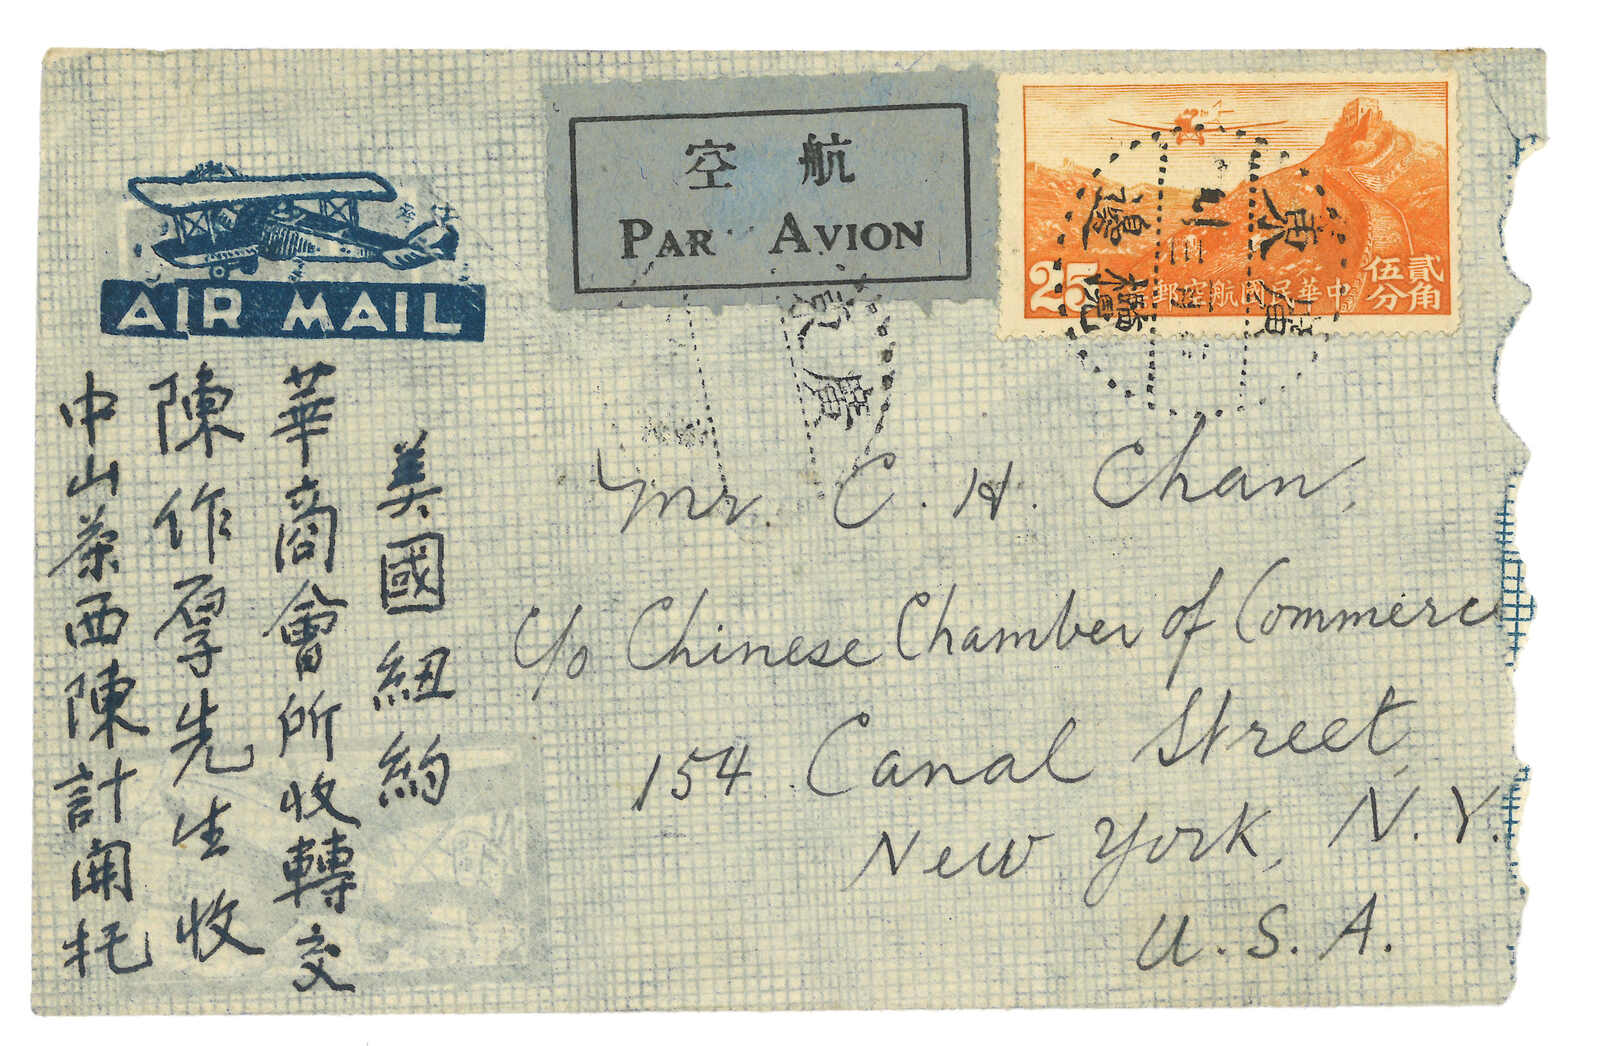 航空
PAR AVION
AIR MAIL
25
貳角
伍分
中華民國航空郵
廣
美國紐約
華商會所收轉交
陳作羣先生收
中山茶西陳計開托
Mr. C. H. Chan,
c/o Chinese Chamber of Commerce
154 Canal Street,
New York, N.Y.
U.S.A.